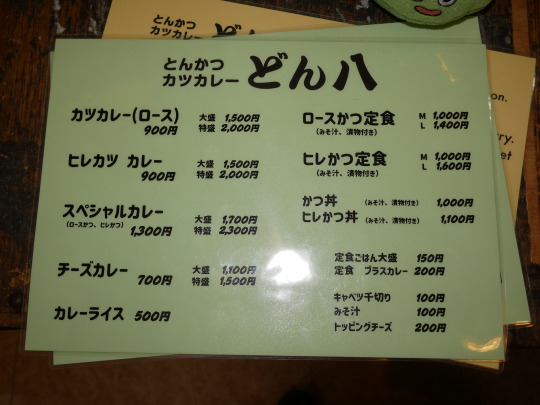 とんかつ
カツカレー どん八
カツカレー(ロース)
900円
大盛 1,500円
特盛 2,000円
ヒレカツ カレー
900円
大盛 1,500円
特盛 2,000円
スペシャルカレー
(ロースかつ、ヒレかつ)
1,300円
大盛 1,700円
特盛 2,300円
チーズカレー
700円
大盛 1,100円
特盛 1,500円
カレーライス 500円
ロースかつ定食
(みそ汁、漬物付き)
M 1,000円
L 1,400円
ヒレかつ定食
(みそ汁、漬物付き)
M 1,000円
L 1,600円
かつ丼 (みそ汁、漬物付き) 1,000円
ヒレかつ丼 (みそ汁、漬物付き) 1,100円
定食ごはん大盛 150円
定食 プラスカレー 200円
キャベツ千切り 100円
みそ汁 100円
トッピングチーズ 200円
とんかつ
カツカレー